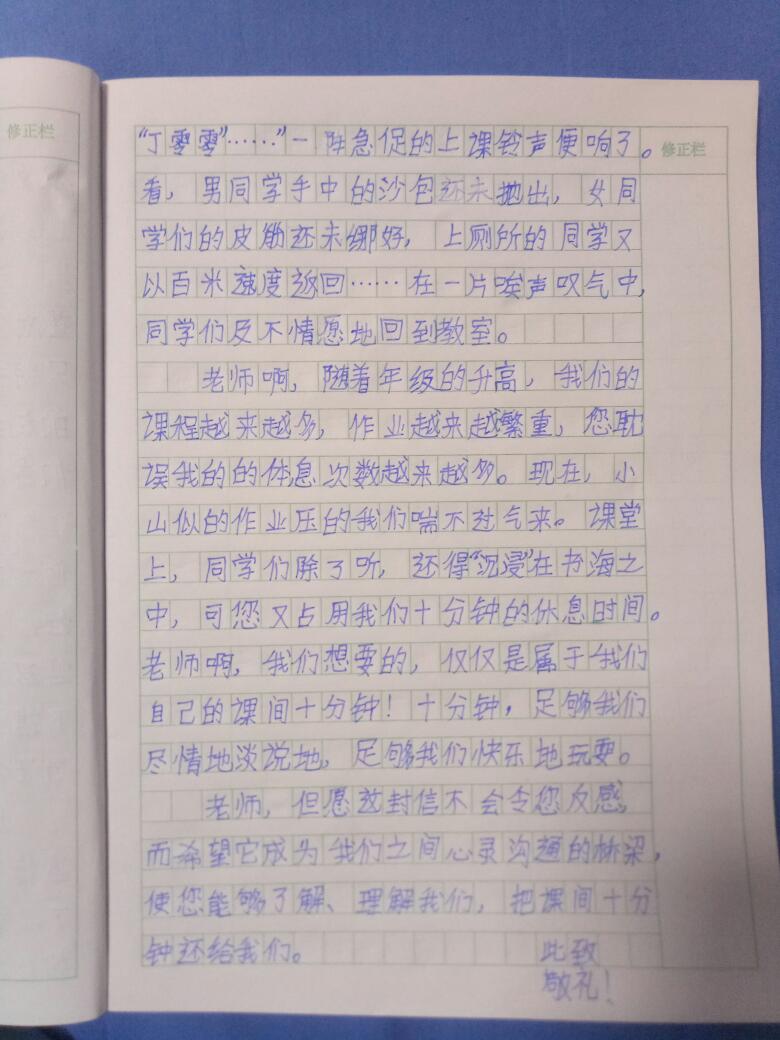 修正栏
修正栏
“丁零零”……”一阵急促的上课铃声便响了。
看，男同学手中的沙包还未抛出，女同
学们的皮筋还未绷好，上厕所的同学又
以百米速度返回……在一片唉声叹气中，
同学们及不情愿地回到教室。
老师啊，随着年级的升高，我们的
课程越来越多，作业越来越繁重，您耽
误我的的体息次数越来越多。现在，小
山似的作业压的我们喘不过气来。课堂
上，同学们除了听，还得“沉浸”在书海之
中，可您又占用我们十分钟的休息时间。
老师啊，我们想要的，仅仅是属于我们
自己的课间十分钟！十分钟，足够我们
尽情地谈说地，足够我们快乐地玩耍。
老师，但愿这封信不会令您反感，
而希望它成为我们之间心灵沟通的桥梁，
使您能够了解、理解我们，把课间十分
钟还给我们。
此致
敬礼！